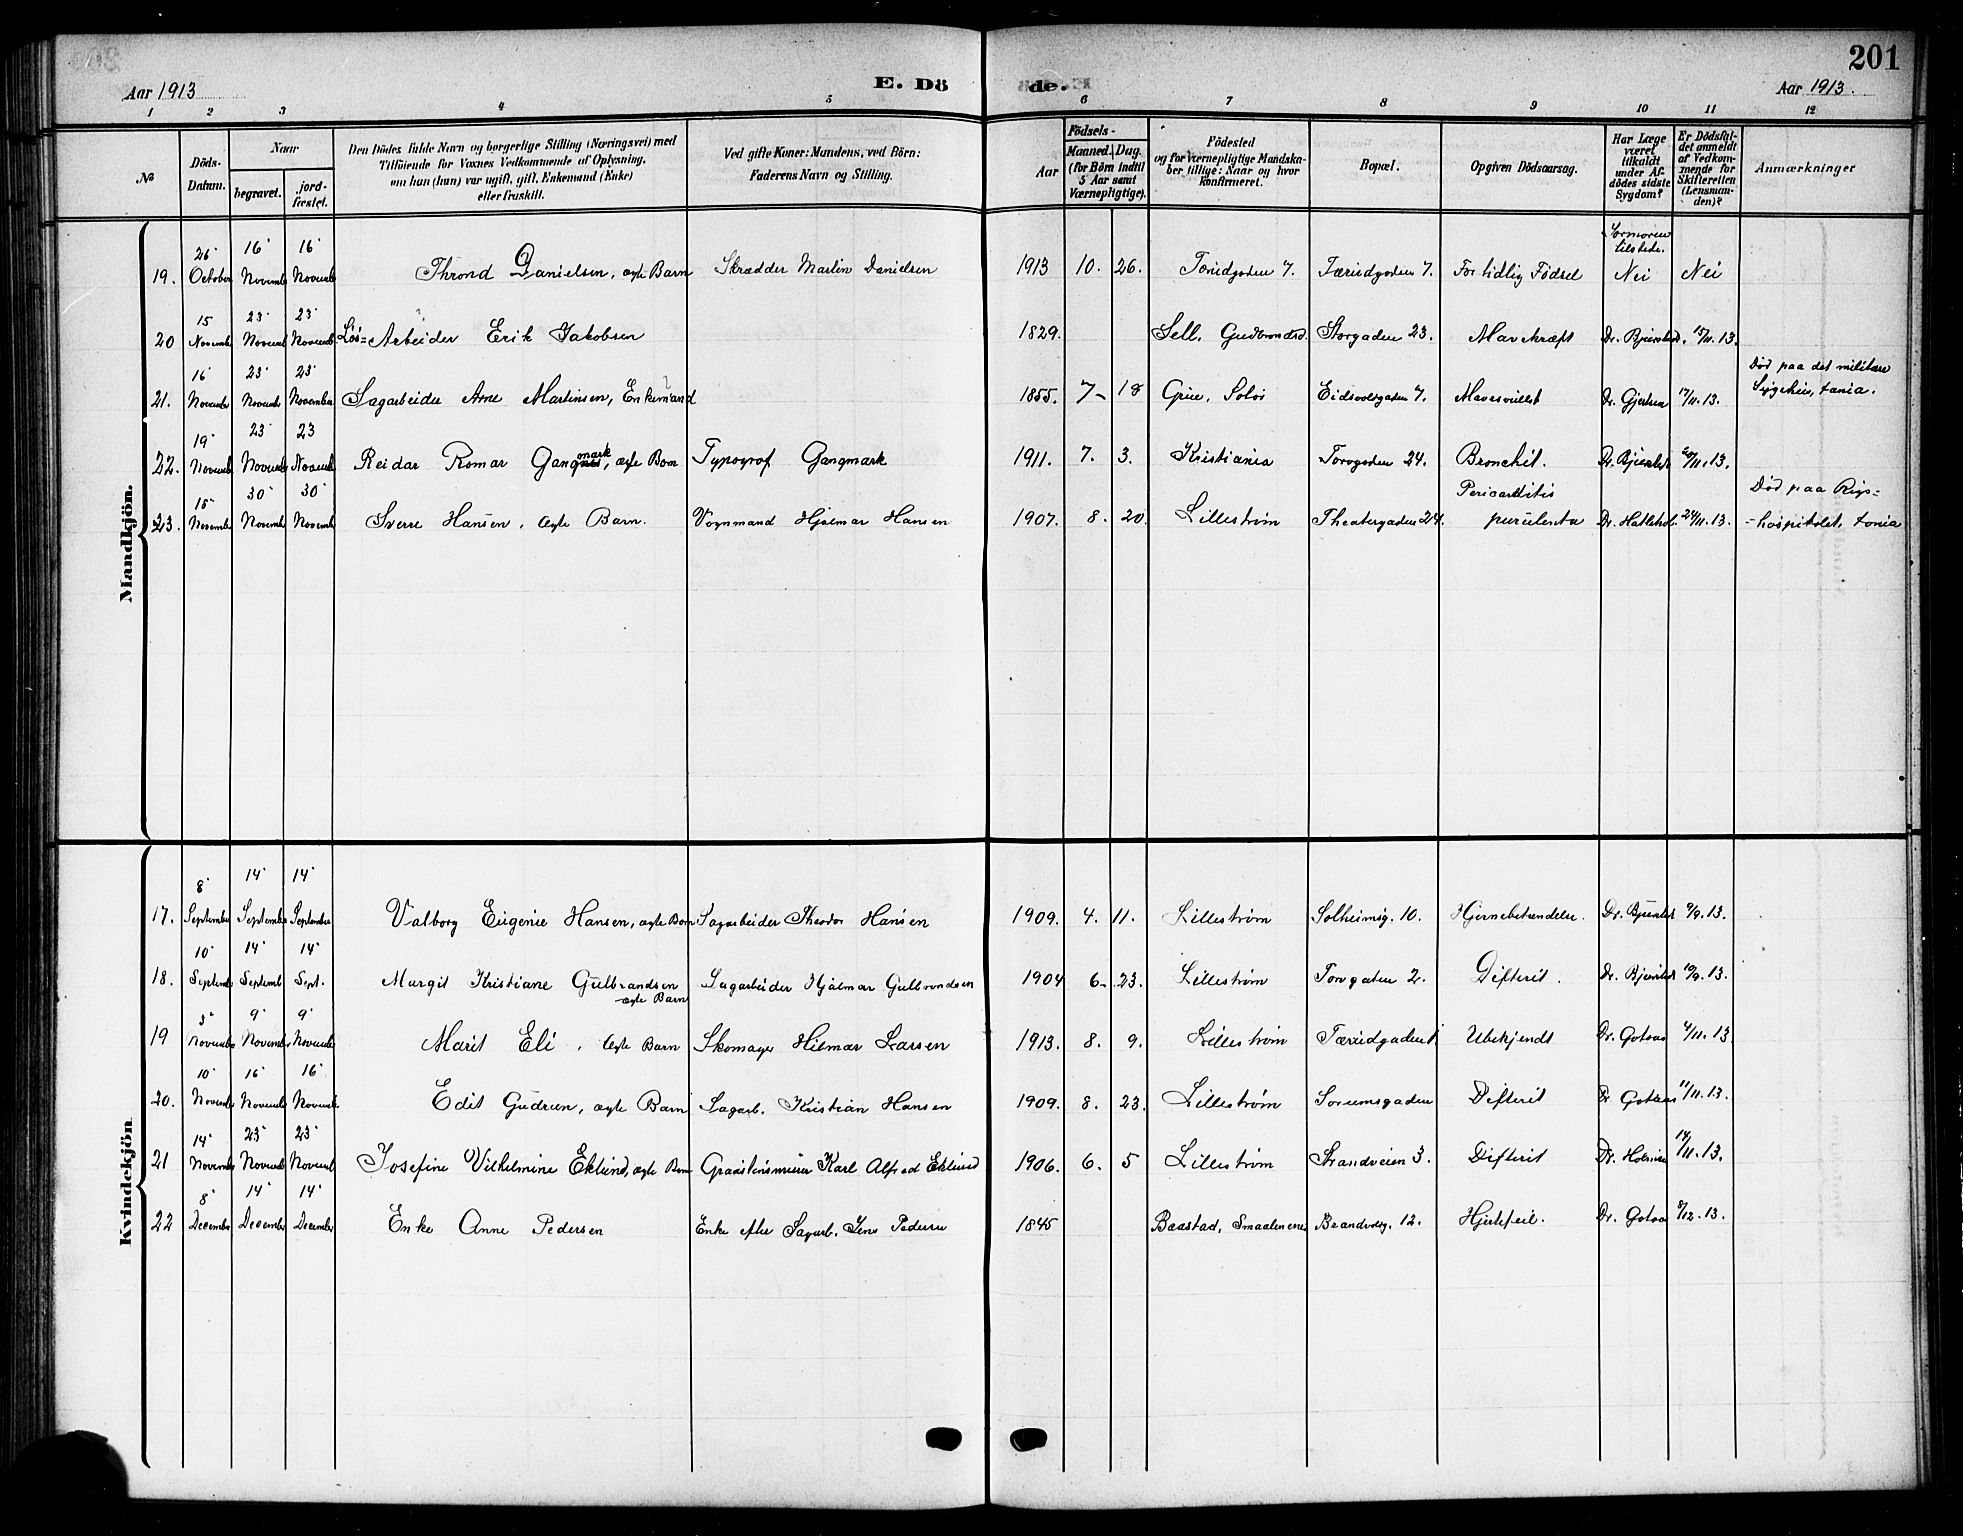 201
Aar 1913
E. Dö
de.
Aar 1913.
1 2 3 4 5 6 7 8 9 10 11 12
№
Döds-Datum.
Naar
begravet.
jord-fæstet.
Den Dödes fulde Navn og borgerlige Stilling (Næringsvei) med
Tilföiende for Voxnes Vedkommende af Oplysning,
om han (hun) var ugift, gift, Enkemand (Enke)
eller fraskilt.
Ved gifte Koner: Mandens, ved Börn:
Faderens Navn og Stilling.
Födsels-
Aar
Maaned. Dag.
(for Börn indtil
5 Aar samt
Værnepligtige).
Födested
og for værnepligtige Mandska-
ber tillige: Naar og hvor
konfirmeret.
Bopæl.
Opgiven Dödsaarsag.
Har Læge
været
tilkaldt
under Af-
dödes sidste
Sygdom?
Er Dödsfal-
det anmeldt
af Vedkom-
mende for
Skifteretten
(Lensman-
den)?
Anmærkninger
Mandkjön.
19. 26 October 16 Novemb 16 Novemb Thrond Danielsen, ægte Barn Skrædder Martin Danielsen 1913 10. 26. Tærudgaden 7. Tærudgaden 7. For tidlig Födsel Jormoren tilstede. Nei Nei
20 15 Novemb 23 Novemb 23 Novemb Lös=Arbeider Erik Jakobsen 1829. Sell. Gudbrandsd. Storgaden 23. Mavekræft Dr. Bjerished. 15/11.13.
21. 16 Novemb 23 Novemb 23 November Sagarbeider Arne Martinsen, Enkemand 1855. 7- 18 Grue, Solør Eidsvoldgaden 7. Mavesvulst Dr. Gjertsen 17/11.13. Död paa det militære Sygehus, tania.
22. 19 Novemb 23 Novemb 23 Novemb Reidar Romar Gangmark, ægte Barn Typograf Gangmark 1911. 7. 3. Kristiania Torvgaden 24. Bronchit. Dr. Bjerished 20/11.13.
23. 15 Novemb 30 Novemb 30 Novemb Sverre Hansen, ægte Barn. Vognmand Hjalmar Hansen 1907. 8. 20. Lillestrøm Theatergaden 24. Pericarditis purulenta Dr. Hatlehol. 24/11.13. Död paa Rigs=
=hospitalet, tania
Kvindekjön
17. 8 September 14 Septemb 14 September Valborg Eugenie Hansen, ægte Barn Sagarbeider Theodor Hansen 1909. 4. 11. Lillestrøm Solheimsg. 10. Hjernebetændelse. Dr. Bjerished 9/9.13.
18. 10 Septemb 14 Septemb 14 Sept. Margit Kristiane Gulbrandsen ægte Barn Sagarbeider Hjalmar Gulbrandsen 1904 6- 23. Lillestrøm Torvgaten 2. Difterit. Dr. Bjerished 10/9.13.
19 3 Novemb 9 Novemb. 9 Novemb Marit Eli, ægte Barn Skomager Hilmar Larsen 1913. 8. 9. Lillestrøm Tæruidgaden 1. Ubekjendt Dr. Gotaas 4/11.13.
20. 10 Novemb 16 Novemb 16 Novemb. Edit Gudrun, ægte Barn Sagarb. Kristian Hansen 1909. 8. 23. Lillestrøm Sørumsgaden Difterit Dr. Gotaas 11/11.13.
21 14 Novemb 23 Novemb 23 Novemb Josefine Vilhelmine Eklund, ægte Barn Graastensmurer Karl Alfred Eklund 1906. 6. 5 Lillestrøm Strandveien 3. Difterit Dr. Holmsen 14/11.13.
22 8 December 14 December 14 December Enke Anne Pedersen Enke efter Sagarb. Jens Pedersen 1845 Baastad, Smaalenene Brandvolg. 12. Hjertefeil. Dr. Gotaas 9/12.13.